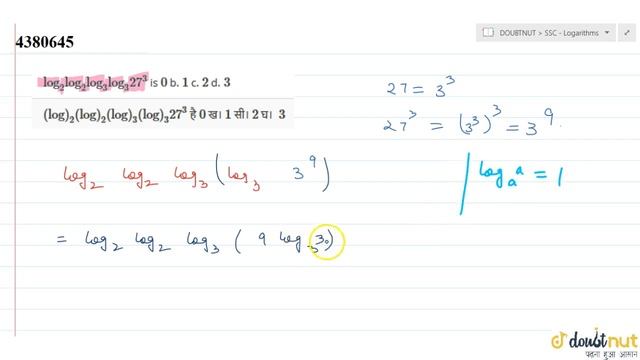 DOUBTNUT > SSC - Logarithms
4380645
log₂log₂log₃log₃27³ is 0 b. 1 c. 2 d. 3
(log)₂(log)₂(log)₃(log)₃27³ है 0 ख। 1 सी। 2 घ। 3
27 = 3³
27³ = (3³)³ = 3⁹.
log₂ log₂ log₃ (log₃ 3⁹)
logₐᵃ = 1
= log₂ log₂ log₃ ( 9 log₃ 3)
doubtnut
पढ़ना हुआ आसान